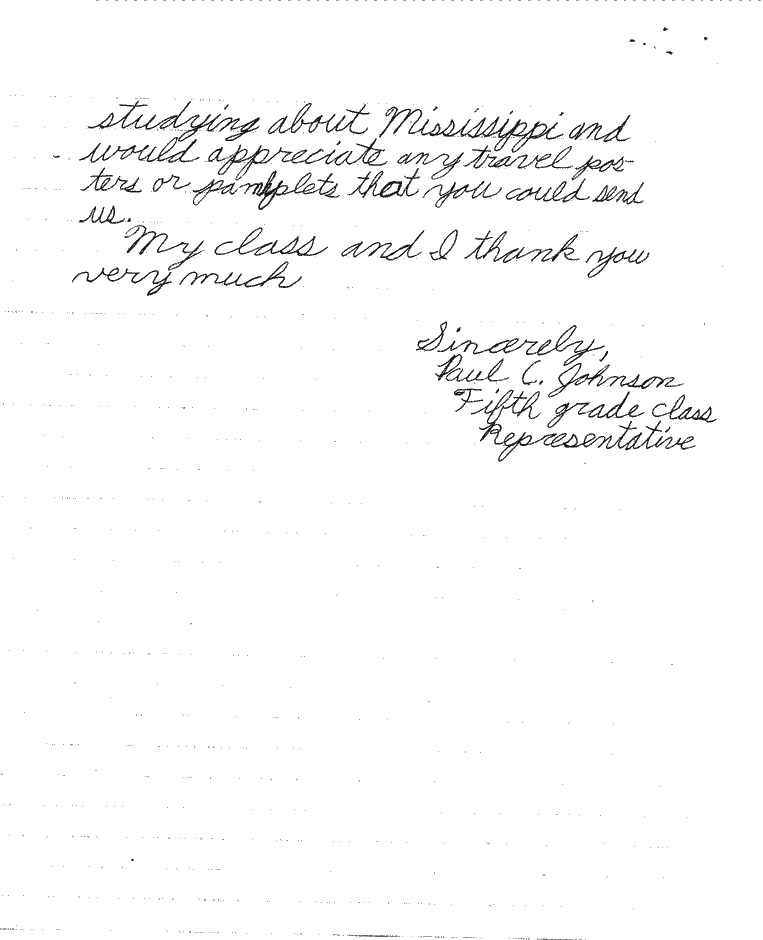 studying about Mississippi and
would appreciate any travel pos-
ters or pamplets that you could send
us.
My class and I thank you
very much
Sincerely,
Paul C. Johnson
Fifth grade class
Representative